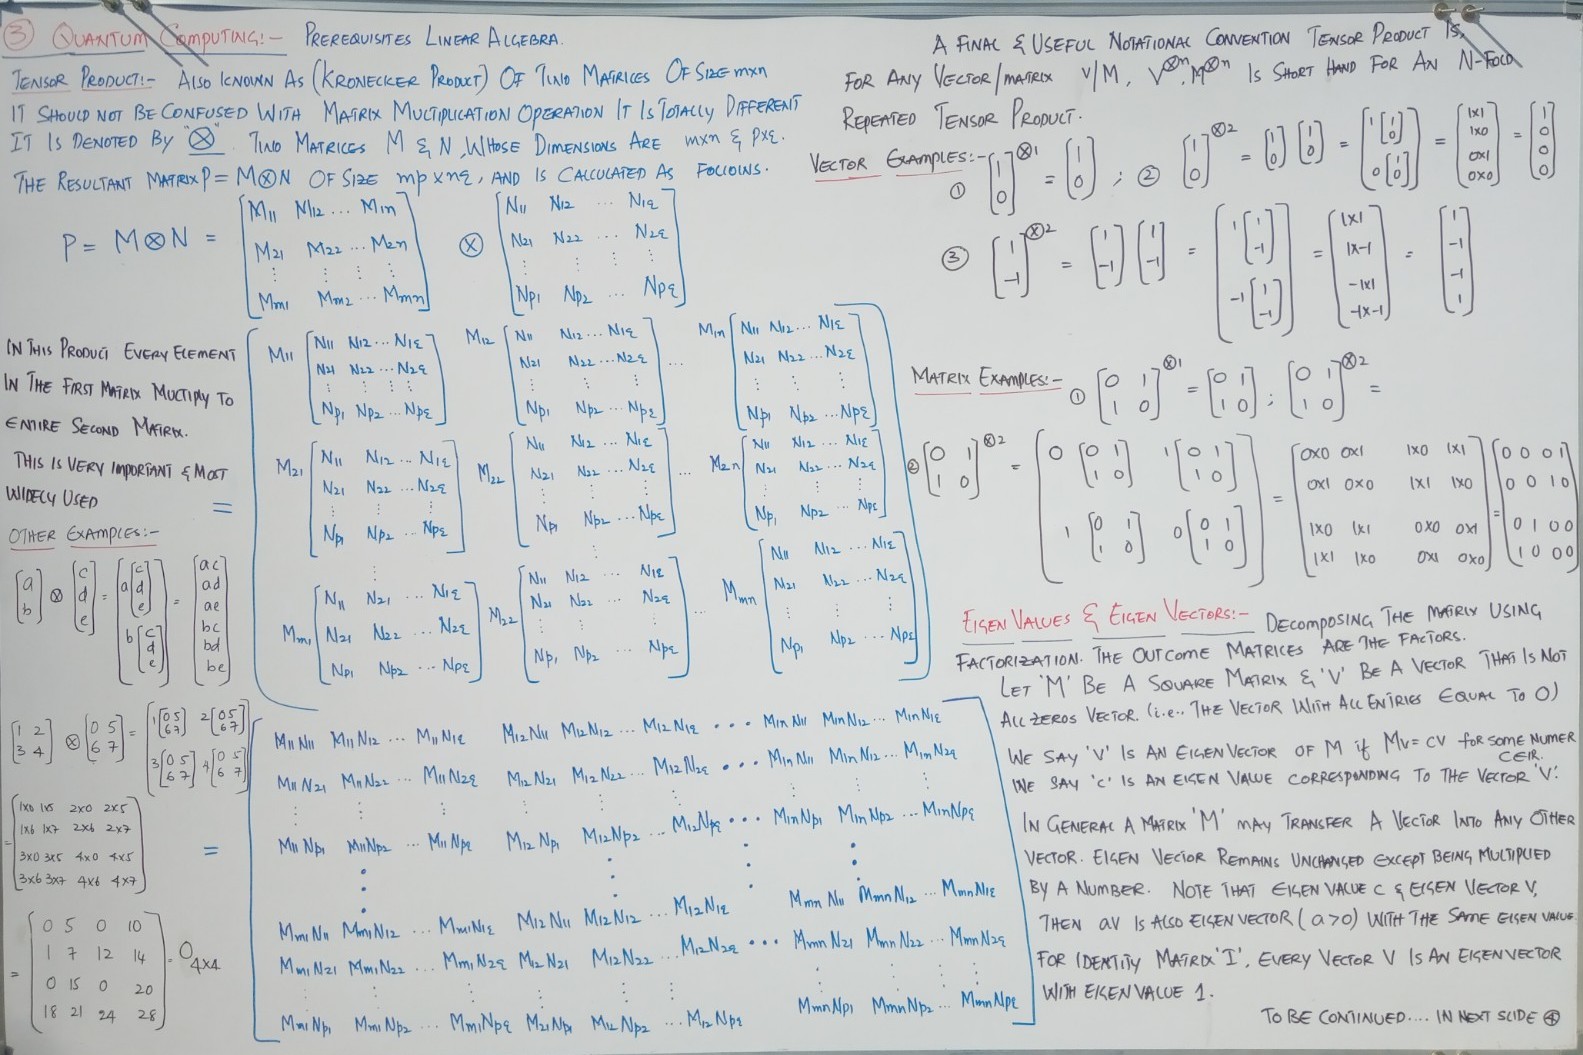 ③ QUANTUM COMPUTING:- PREREQUISITES LINEAR ALGEBRA.
TENSOR PRODUCT:- ALSO KNOWN AS (KRONECKER PRODUCT) OF TWO MATRICES OF SIZE mxn
IT SHOULD NOT BE CONFUSED WITH MATRIX MULTIPLICATION OPERATION IT IS TOTALLY DIFFERENT
IT IS DENOTED BY "⊗". TWO MATRICES M & N, WHOSE DIMENSIONS ARE mxn & pxq.
THE RESULTANT MATRIX P = M⊗N OF SIZE mp x nq, AND IS CALCULATED AS FOLLOWS.
P = M⊗N = [M11 M12 ... M1n ⊗ [N11 N12 ... N1q
M21 M22 ... M2n N21 N22 ... N2q
⋮ ⋮ ⋮ ⋮ ⋮ ⋮ ⋮ ⋮
Mm1 Mm2 ... Mmn] Np1 Np2 ... Npq]
IN THIS PRODUCT EVERY ELEMENT
IN THE FIRST MATRIX MULTIPLY TO
ENTIRE SECOND MATRIX.
THIS IS VERY IMPORTANT & MOST
WIDELY USED
=
M11 [N11 N12 ... N1q M12 [N11 N12 ... N1q M1n [N11 N12 ... N1q
N21 N22 ... N2q N21 N22 ... N2q ... N21 N22 ... N2q
⋮ ⋮ ⋮ ⋮ ⋮ ⋮ ⋮ ⋮ ⋮ ⋮
Np1 Np2 ... Npq] Np1 Np2 ... Npq] Np1 Np2 ... Npq]
M21 [N11 N12 ... N1q M22 [N11 N12 ... N1q ... M2n [N11 N12 ... N1q
N21 N22 ... N2q N21 N22 ... N2q N21 N22 ... N2q
⋮ ⋮ ⋮ ⋮ ⋮ ⋮ ⋮ ⋮ ⋮
Np1 Np2 ... Npq] Np1 Np2 ... Npq] Np1 Np2 ... Npq]
Mm1 [N11 N21 ... N1q M22 [N11 N12 ... N1q ... Mmn [N11 N12 ... N1q
N21 N22 ... N2q N21 N22 ... N2q N21 N22 ... N2q
Np1 Np2 ... Npq] Np1 Np2 ... Npq] Np1 Np2 ... Npq]
=
M11N11 M11N12 ... M11N1q M12N11 M12N12 ... M12N1q ... M1nN11 M1nN12 ... M1nN1q
M11N21 M11N22 ... M11N2q M12N21 M12N22 ... M12N2q ... M1nN11 M1nN12 ... M1nN2q
M11Np1 M11Np2 ... M11Npq M12Np1 M12Np2 ... M12Npq ... M1nNp1 M1nNp2 ... M1nNpq
Mm1N11 Mm1N12 ... Mm1N1q M12N11 M12N12 ... M12N1q MmnN11 MmnN12 ... MmnN1q
Mm1N21 Mm1N22 ... Mm1N2q M12N21 M12N22 ... M12N2q ... MmnN21 MmnN22 ... MmnN2q
Mm1Np1 Mm1Np2 ... Mm1Npq M21Np1 M12Np2 ... M12Npq MmnNp1 MmnNp2 ... MmnNpq
OTHER EXAMPLES:-
[a b] ⊗ [c d e] = [a[c d e] b[c d e]] = [ac ad ae bc bd be]
[1 2 3 4] ⊗ [0 5 6 7] = [1[0 5 6 7] 2[0 5 6 7] 3[0 5 6 7] 4[0 5 6 7]]
= [1x0 1x5 2x0 2x5
1x6 1x7 2x6 2x7
3x0 3x5 4x0 4x5
3x6 3x7 4x6 4x7]
= [0 5 0 10
1 7 12 14
0 15 0 20
18 21 24 28] = O4x4
A FINAL & USEFUL NOTATIONAL CONVENTION TENSOR PRODUCT IS,
FOR ANY VECTOR/MATRIX V/M, V⊗n, M⊗n IS SHORT HAND FOR AN N-FOLD
REPEATED TENSOR PRODUCT.
VECTOR EXAMPLES:-
① [1 0]⊗1 = [1 0] ; ② [1 0]⊗2 = [1 0] [1 0] = [1[1 0] 0[1 0]] = [1x1 1x0 0x1 0x0] = [1 0 0 0]
③ [1 -1]⊗2 = [1 -1] [1 -1] = [1[1 -1] -1[1 -1]] = [1x1 1x-1 -1x1 -1x-1] = [1 -1 -1 1]
MATRIX EXAMPLES:- ① [0 1 1 0]⊗1 = [0 1 1 0] ; [0 1 1 0]⊗2 =
② [0 1 1 0]⊗2 = [0[0 1 1 0] 1[0 1 1 0] 1[0 1 1 0] 0[0 1 1 0]]
= [0x0 0x1 1x0 1x1 = [0 0 0 1
0x1 0x0 1x1 1x0 0 0 1 0
1x0 1x1 0x0 0x1 0 1 0 0
1x1 1x0 0x1 0x0] 1 0 0 0]
EIGEN VALUES & EIGEN VECTORS:- DECOMPOSING THE MATRIX USING
FACTORIZATION. THE OUTCOME MATRICES ARE THE FACTORS.
LET 'M' BE A SQUARE MATRIX & 'V' BE A VECTOR THAT IS NOT
ALL ZEROS VECTOR. (i.e.. THE VECTOR WITH ALL ENTRIES EQUAL TO 0)
WE SAY 'V' IS AN EIGEN VECTOR OF M if Mv = cv for SOME NUMER
CEIR.
WE SAY 'C' IS AN EIGEN VALUE CORRESPONDING TO THE VECTOR 'V'.
IN GENERAL A MATRIX 'M' MAY TRANSFER A VECTOR INTO ANY OTHER
VECTOR. EIGEN VECTOR REMAINS UNCHANGED EXCEPT BEING MULTIPLIED
BY A NUMBER. NOTE THAT EIGEN VALUE C & EIGEN VECTOR V,
THEN aV IS ALSO EIGEN VECTOR (a>0) WITH THE SAME EIGEN VALUE.
FOR IDENTITY MATRIX 'I', EVERY VECTOR V IS AN EIGEN VECTOR
WITH EIGEN VALUE 1.
TO BE CONTINUED.... IN NEXT SLIDE ④